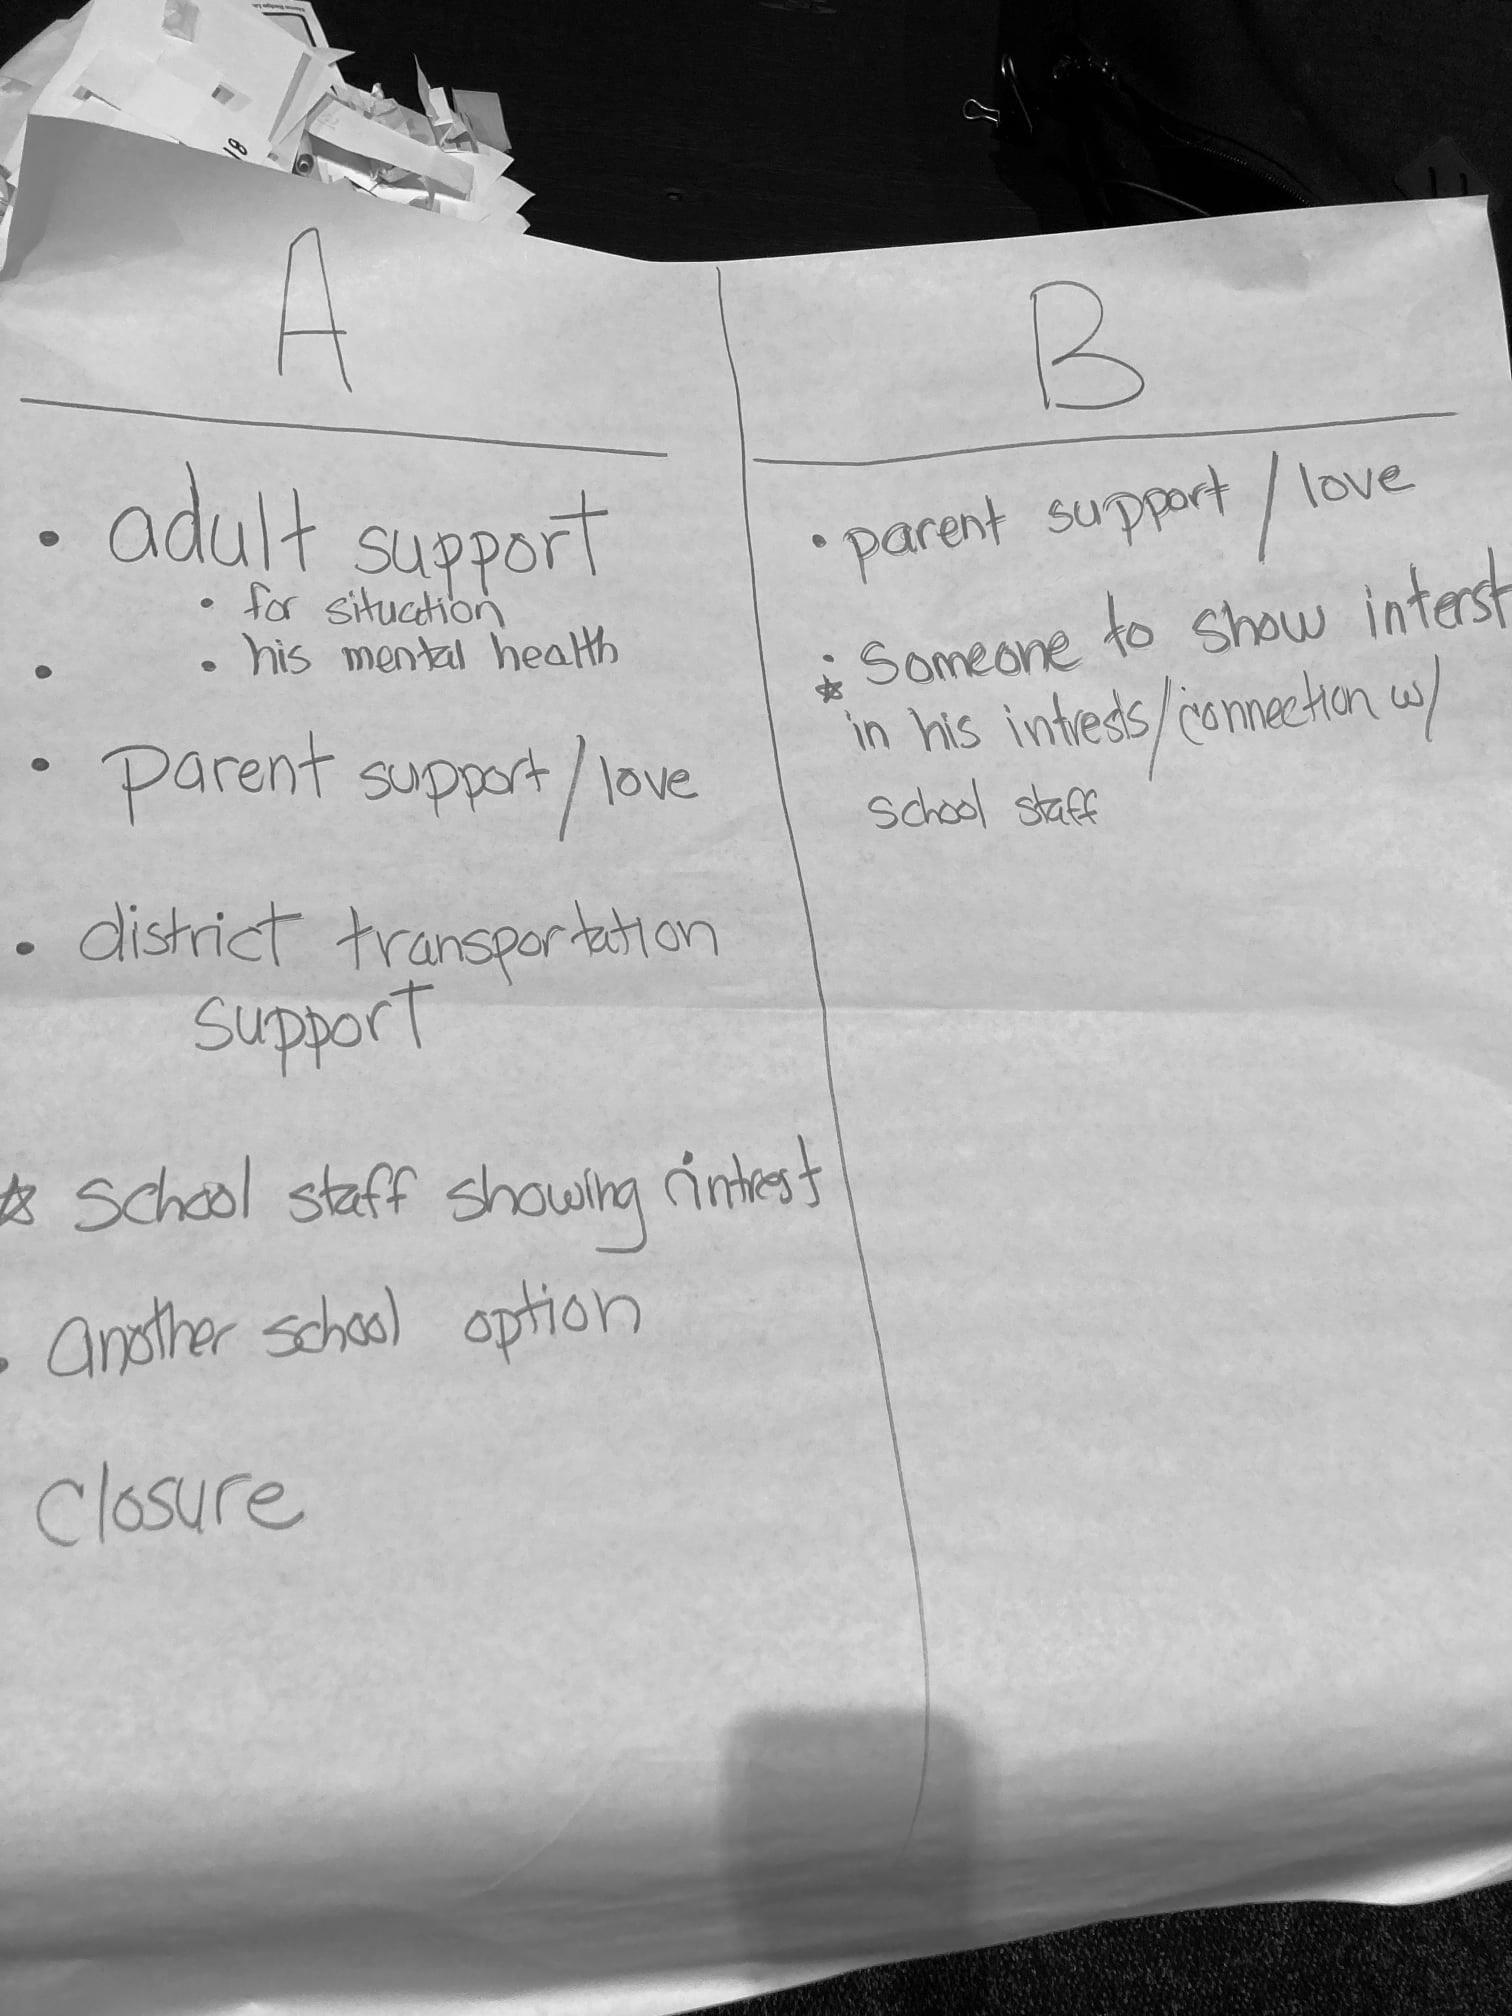 18
A
• adult support
• for situation
• • his mental health
• Parent support / love
• district transportation
support
☆ School staff showing intrest
• another school option
Closure
B
• parent support / love
• ☆ Someone to show interst
in his intrests / connection w/
school staff